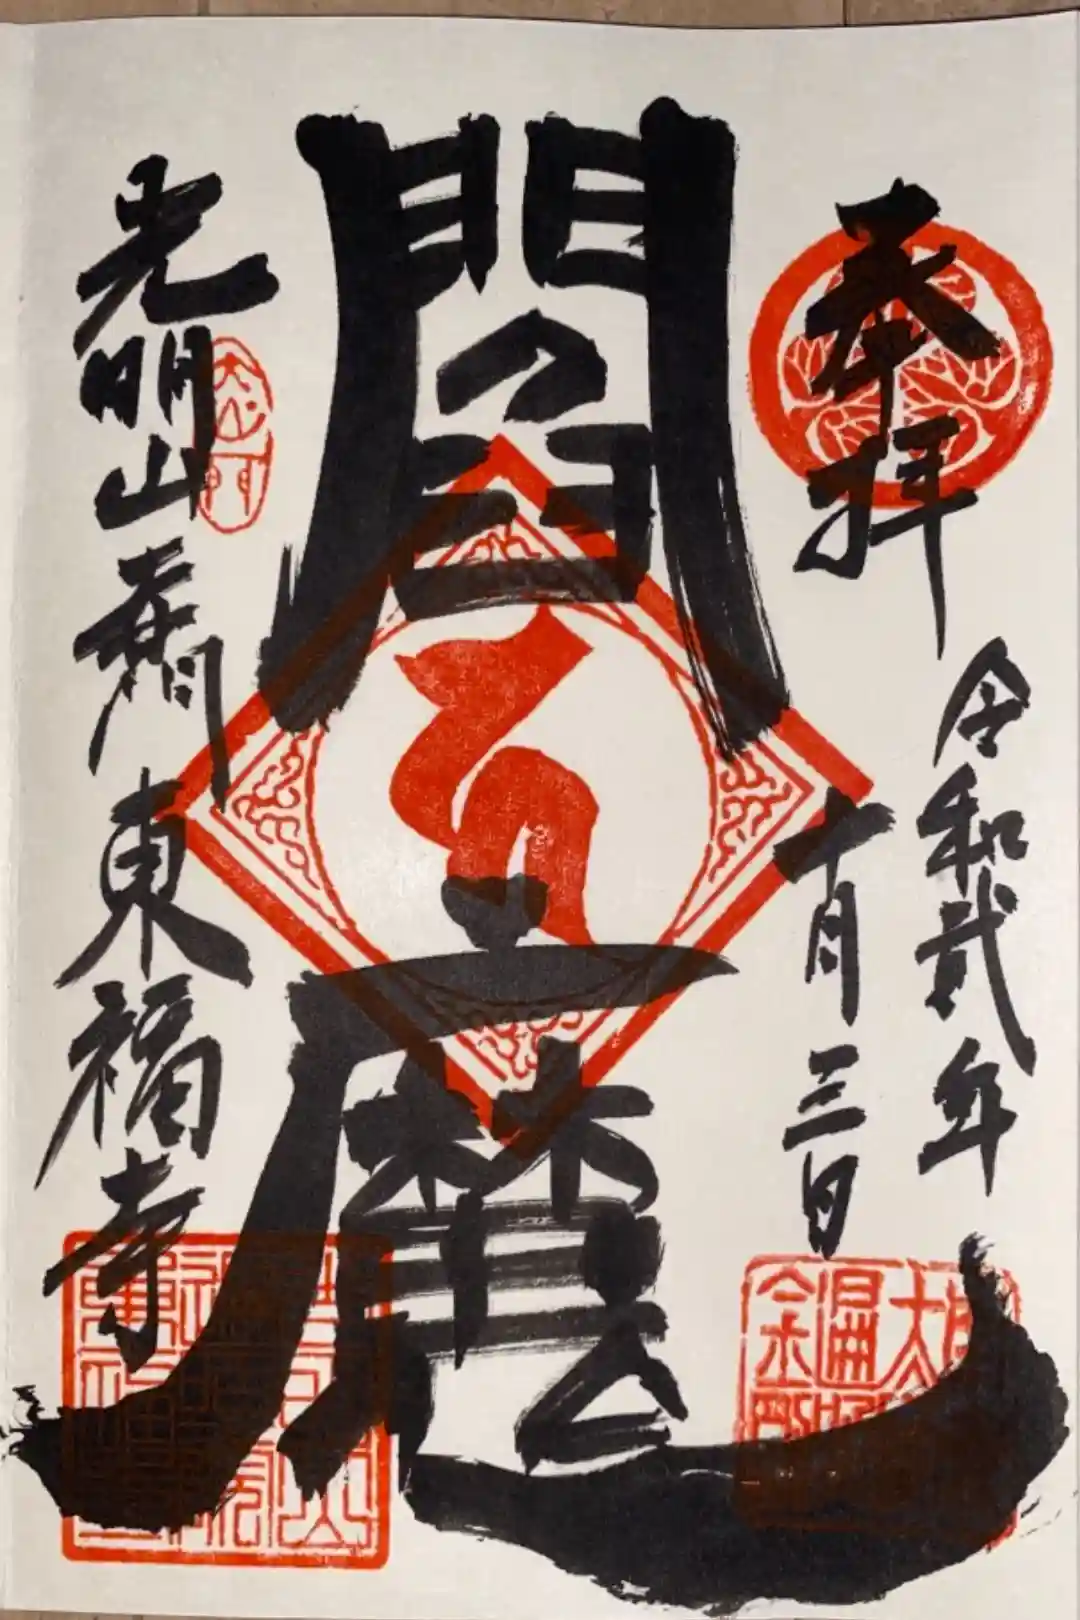 奉拝
令和貳年
十月三日
閻魔
光明山赤門東福寺